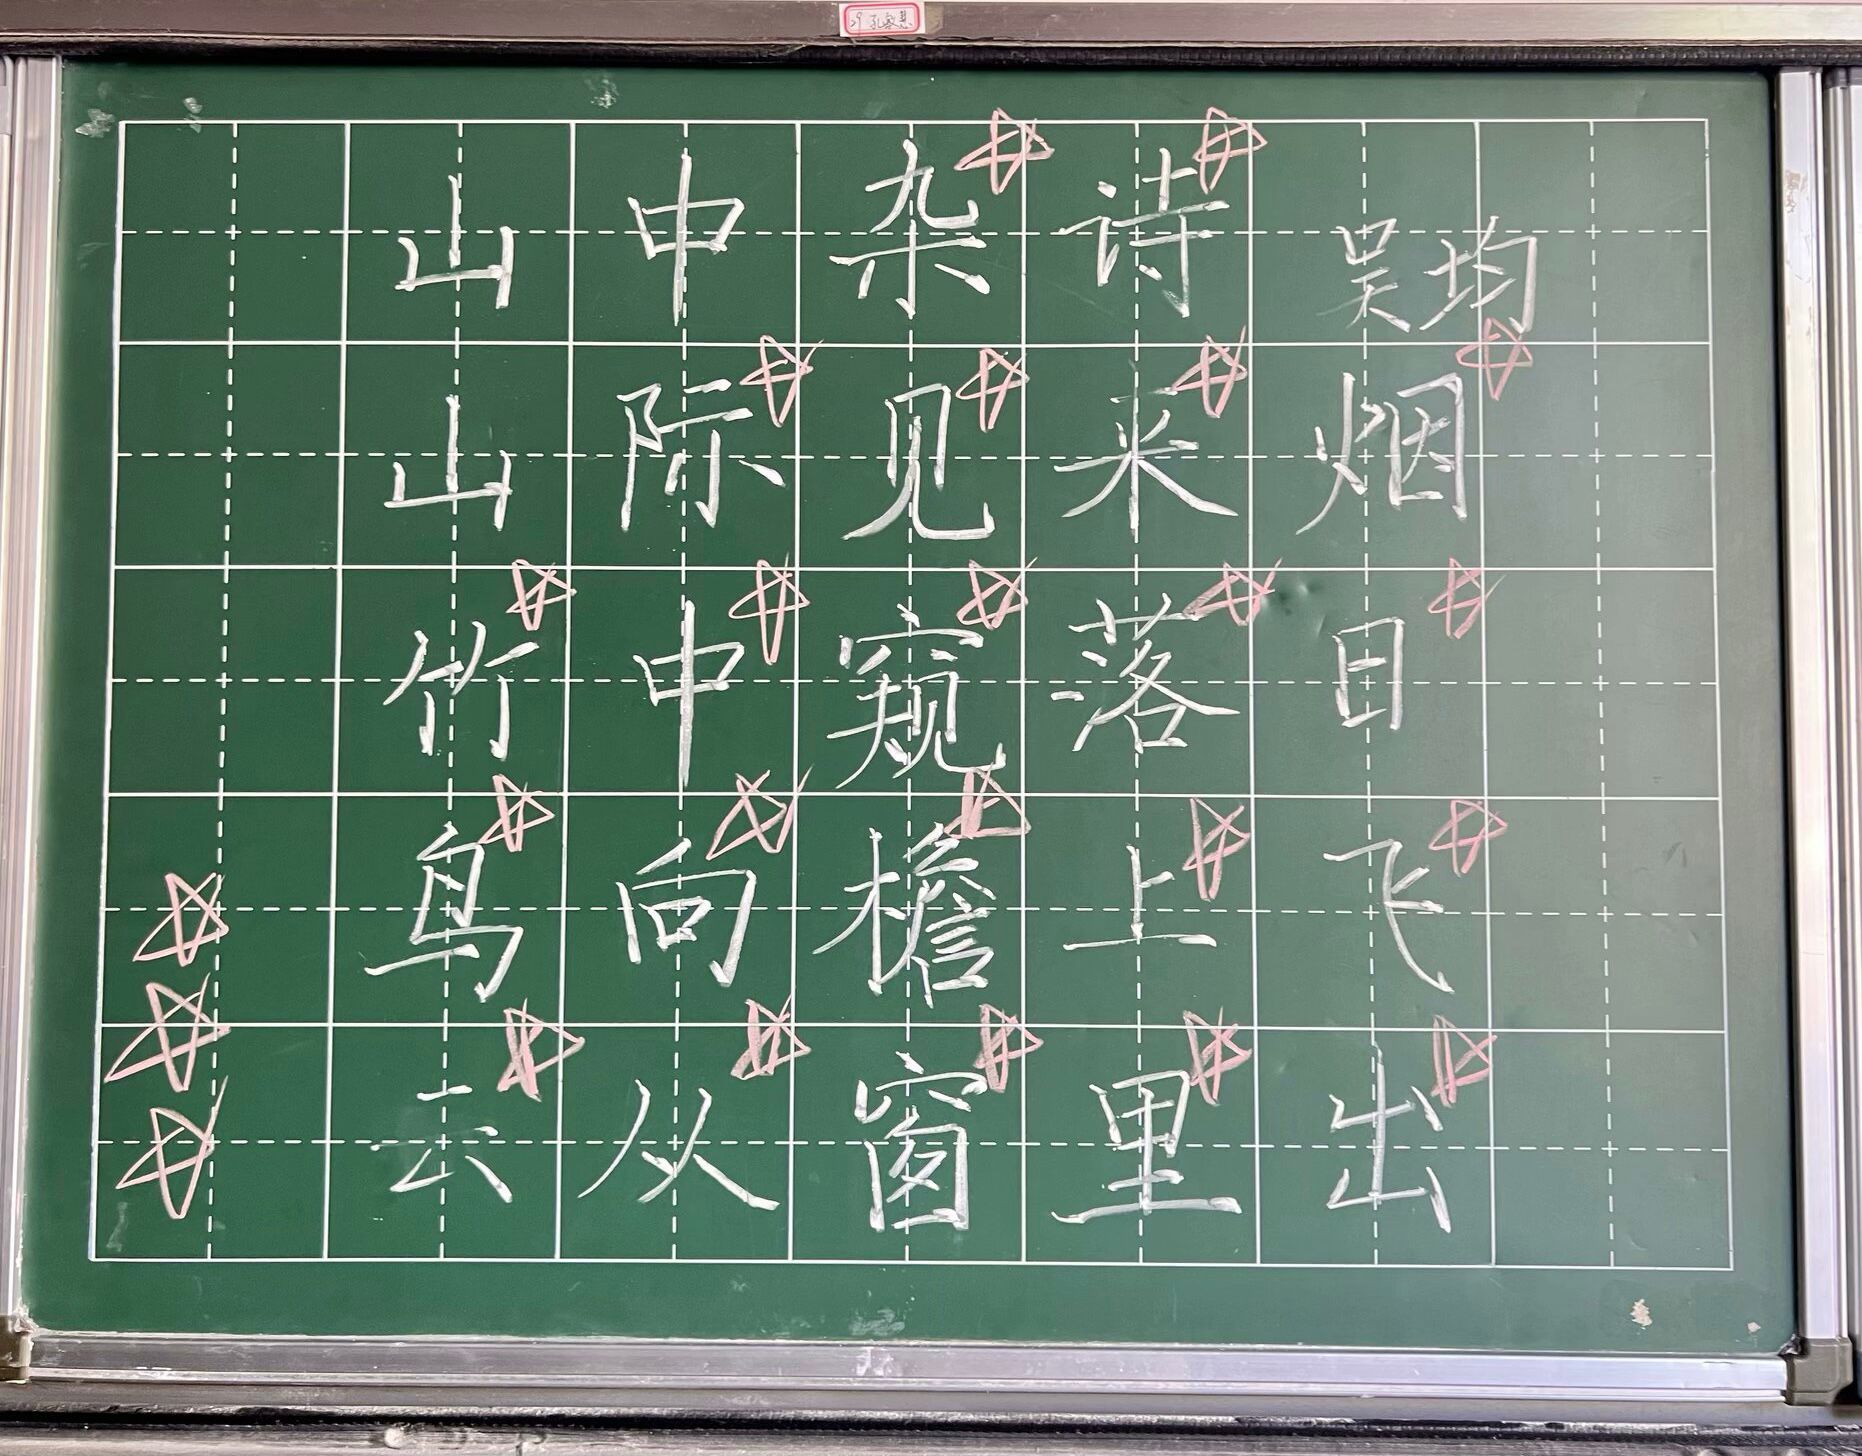 山中杂诗 吴均
山际见来烟
竹中窥落日
鸟向檐上飞
云从窗里出